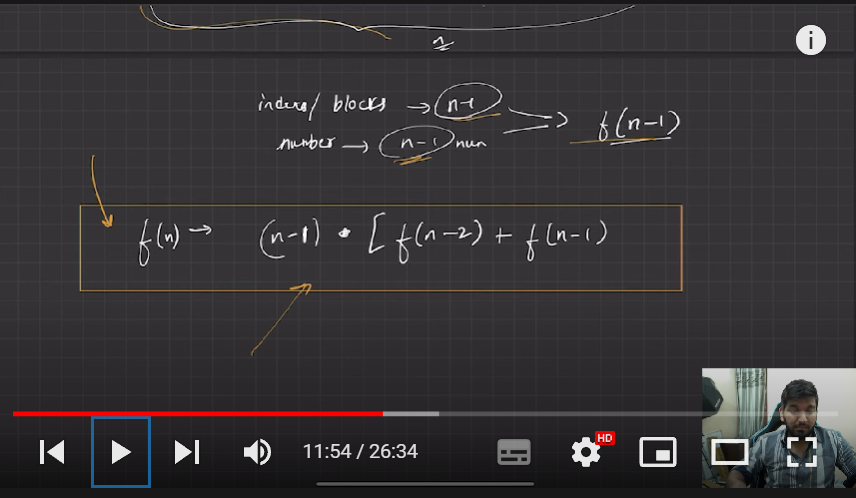 n
i
index/ blocks → n-1
f(n-1)
number → n-1 num
f(n) → (n-1) • [ f(n-2) + f(n-1)
11:54 / 26:34
HD